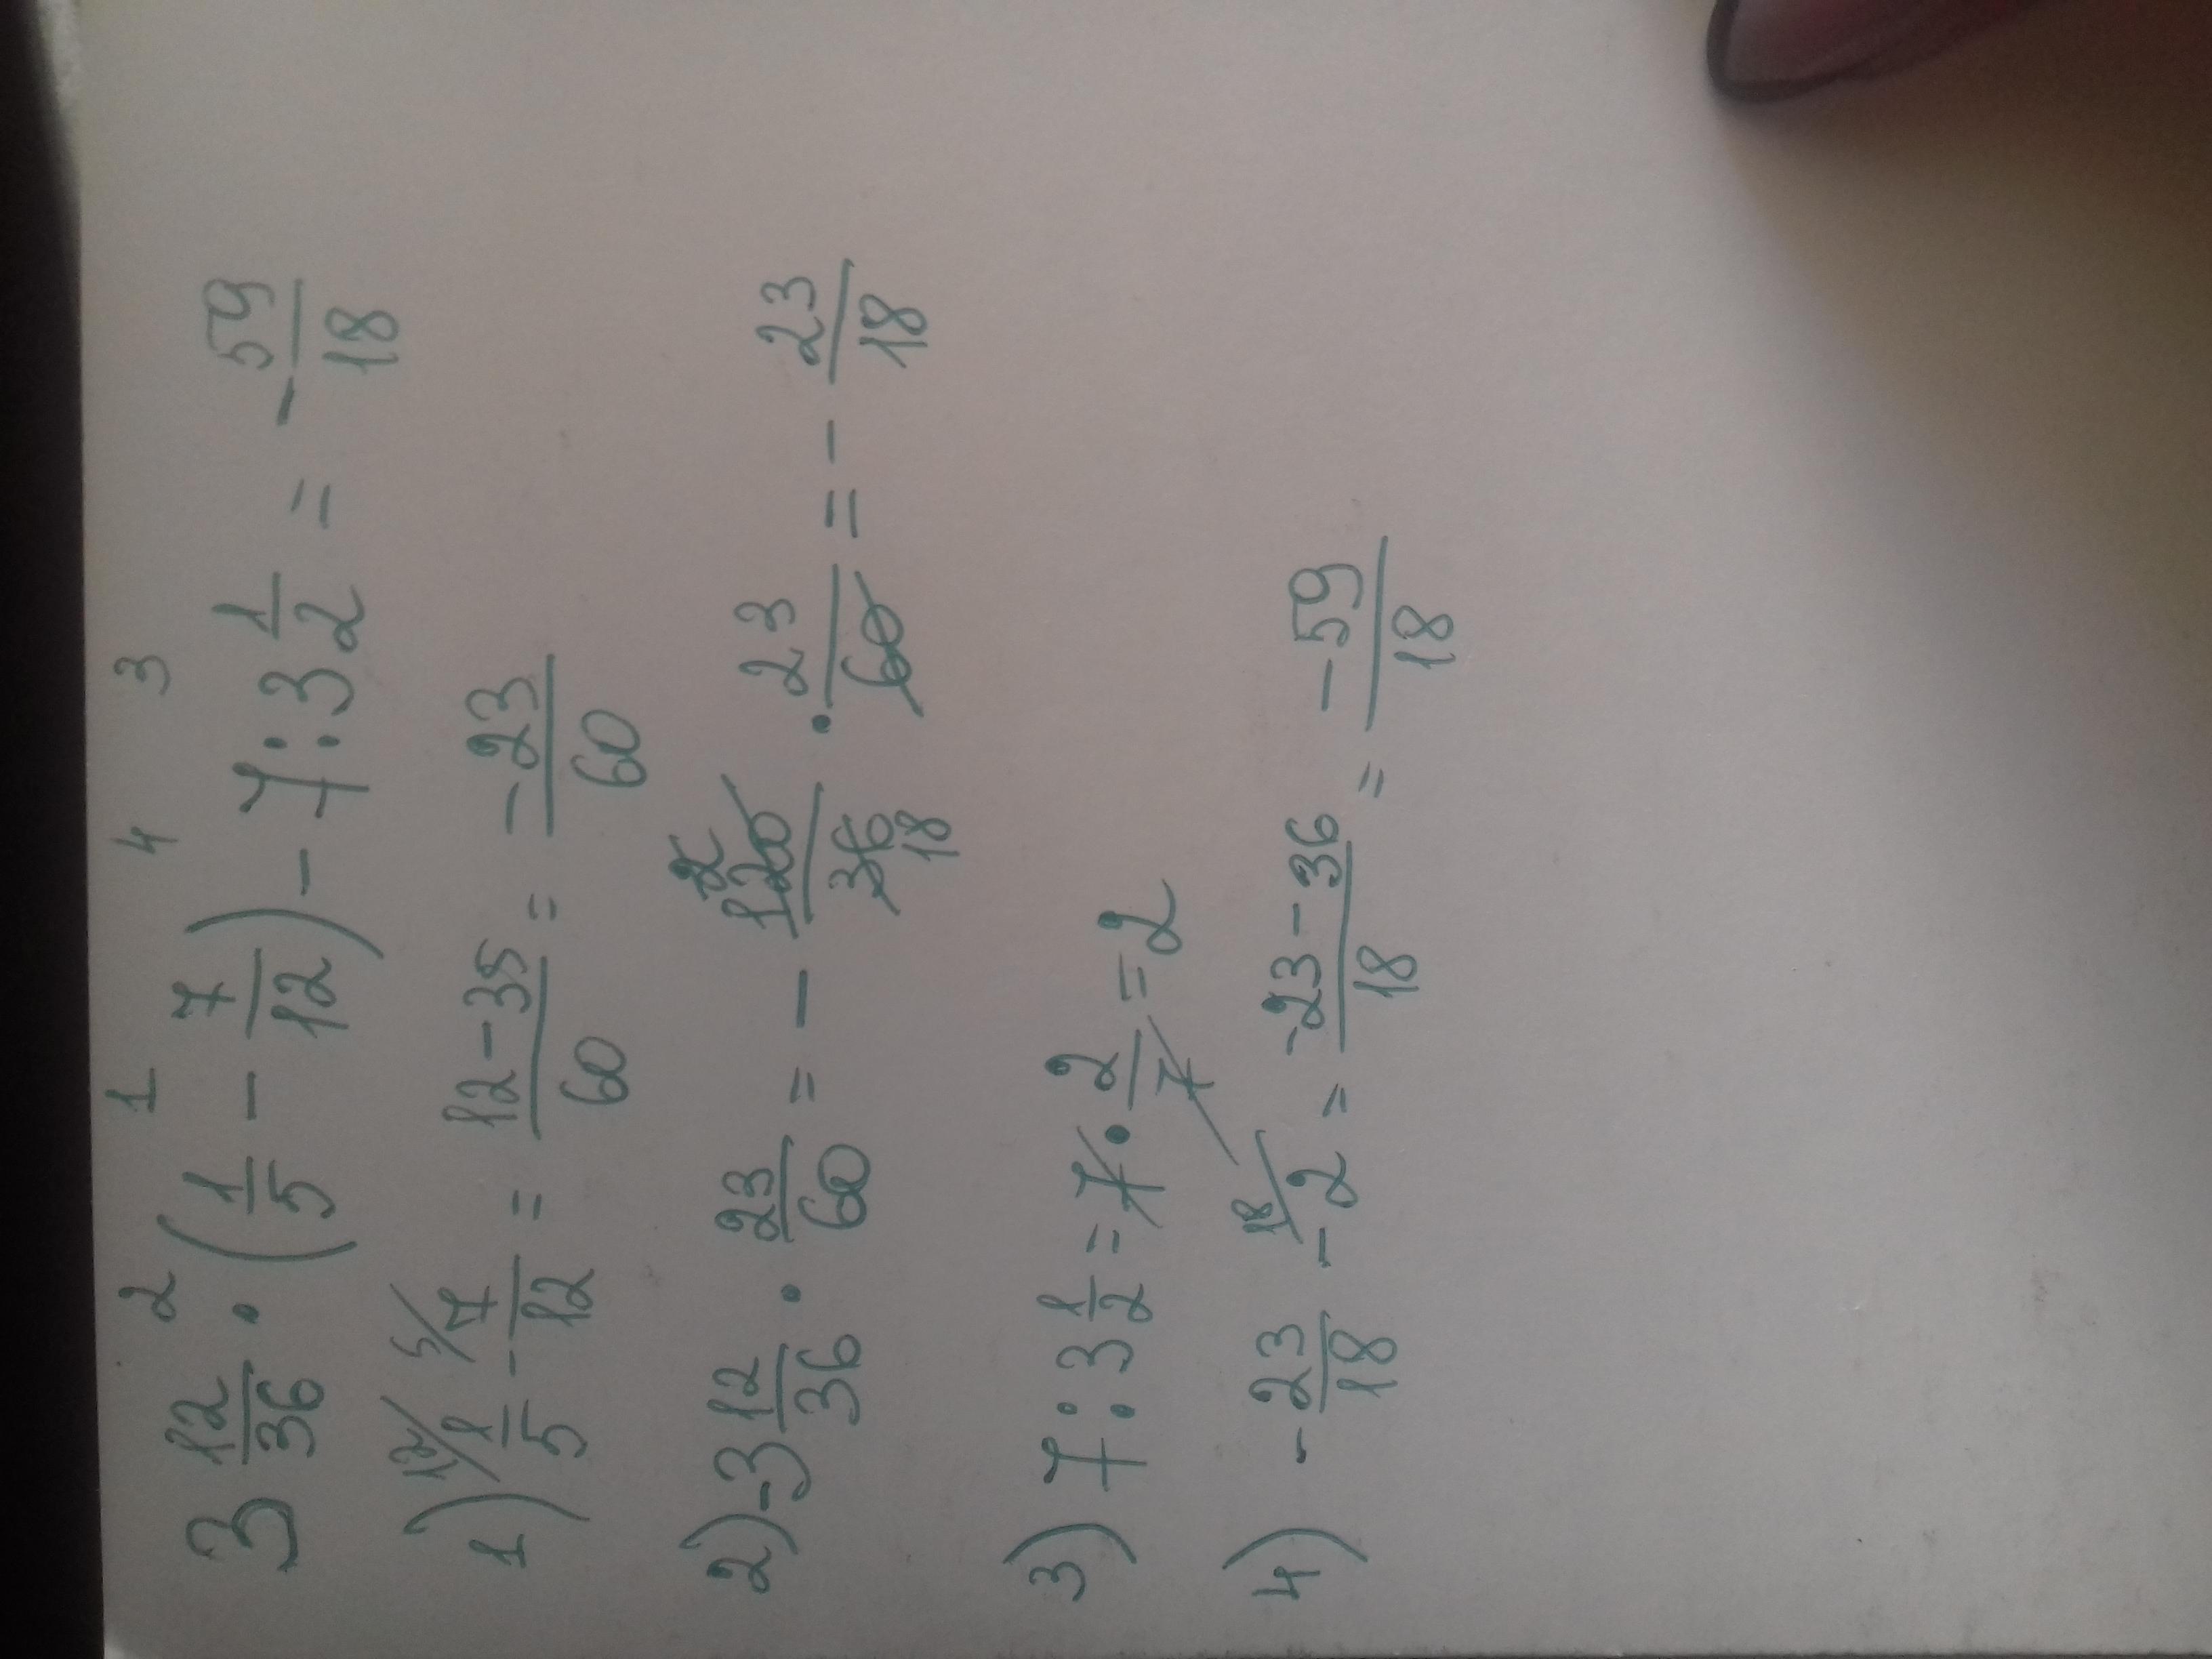 2 1 4 3
3 12/36 · (1/5 - 7/12) - 7 : 3 1/2 = - 59/18
1) 12/ 1/5 - 5/ 7/12 = 12-35/60 = -23/60
2) -3 12/36 · 23/60 = - 120/36 · 23/60 = - 23/18
2 18
3) 7 : 3 1/2 = 7 · 2/7 = 2
4) - 23/18 - 18/ 2 = -23-36/18 = -59/18